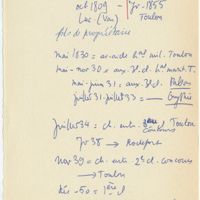 oct 1809 - fr. 1855
Luc (Var) Toulon
fils de propriétaire
mai 1830 = av. aide hal mil. Toulon
mai - nov 30 = aux. 3e cl. hal marit T.
mai - juin 31 = aux. 3e cl.
juillet 31 - juillet 33 =
juillet 34 = ch. entr. 3ème Toulon
concours
Jr 38 → Rochefort
nov 39 = ch. entr. 2e cl. concours
→ Toulon
déc - 50 = 1ère cl.